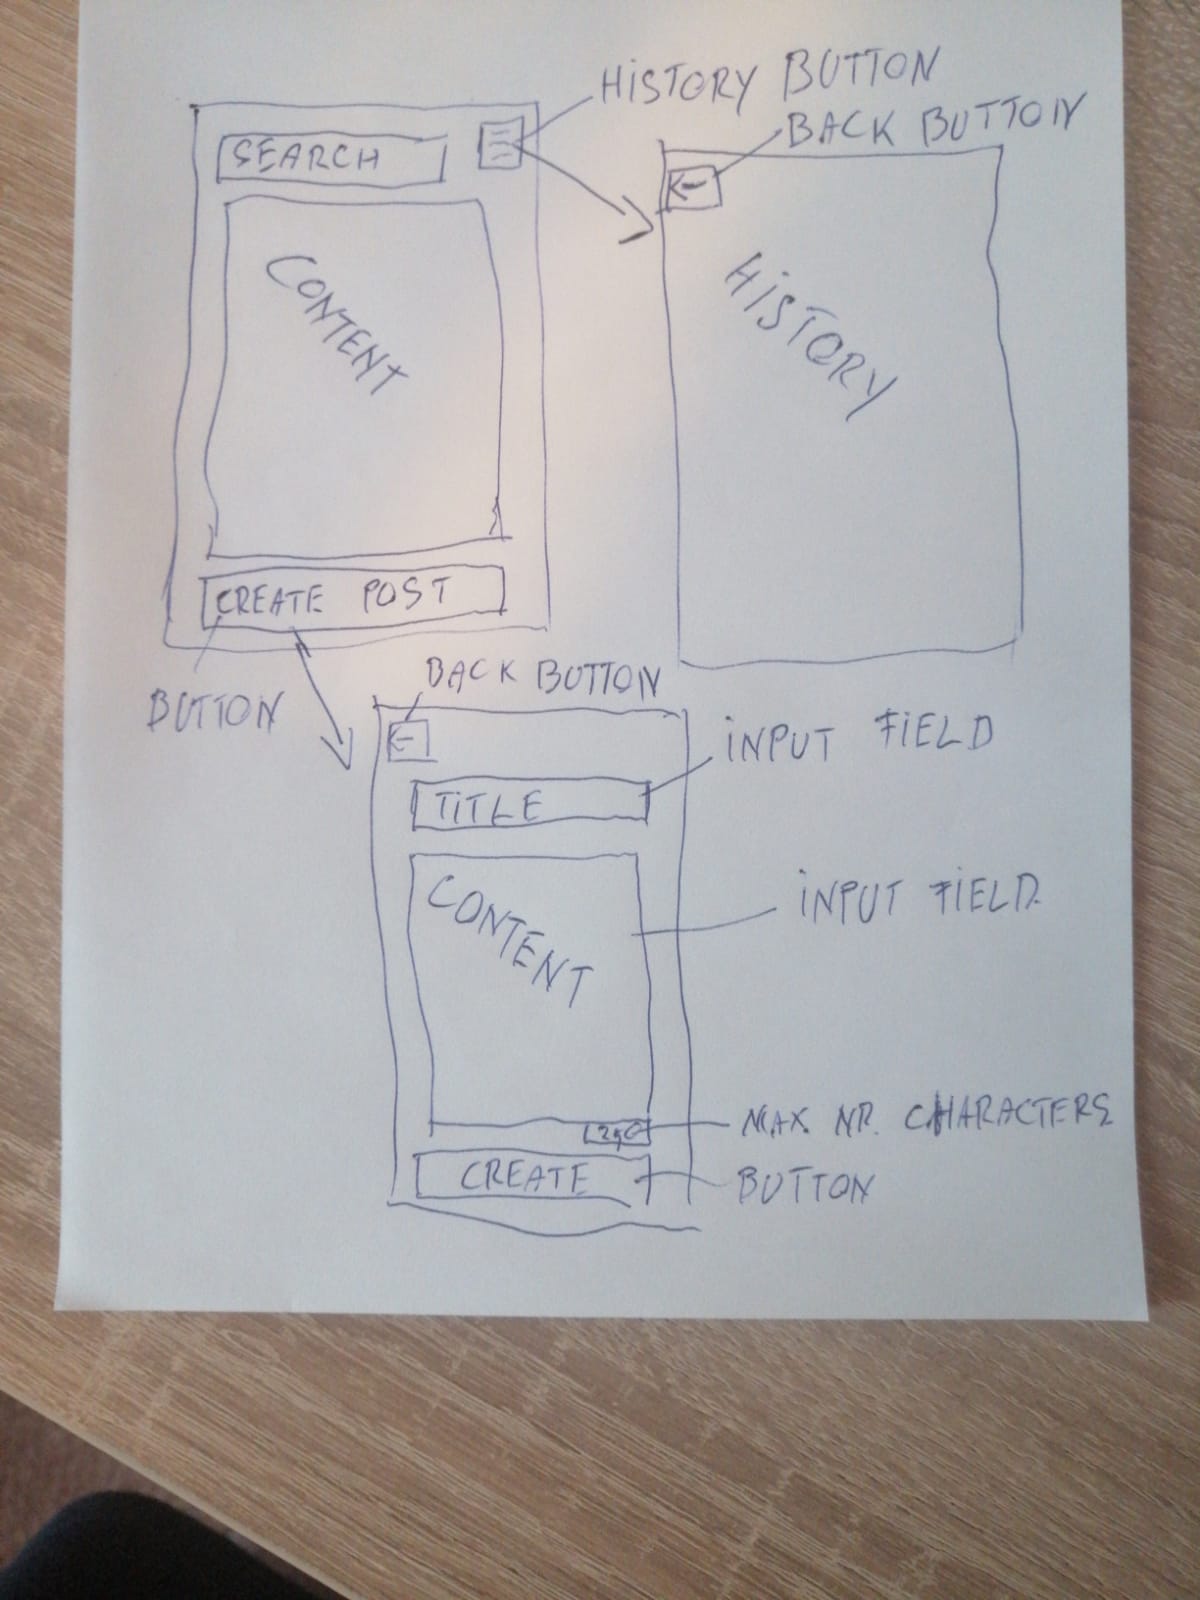 HISTORY BUTTON
BACK BUTTON
SEARCH
CONTENT
HISTORY
CREATE POST
BUTTON
BACK BUTTON
INPUT FIELD
TITLE
CONTENT
INPUT FIELD
MAX. NR. CHARACTERS
CREATE
BUTTON